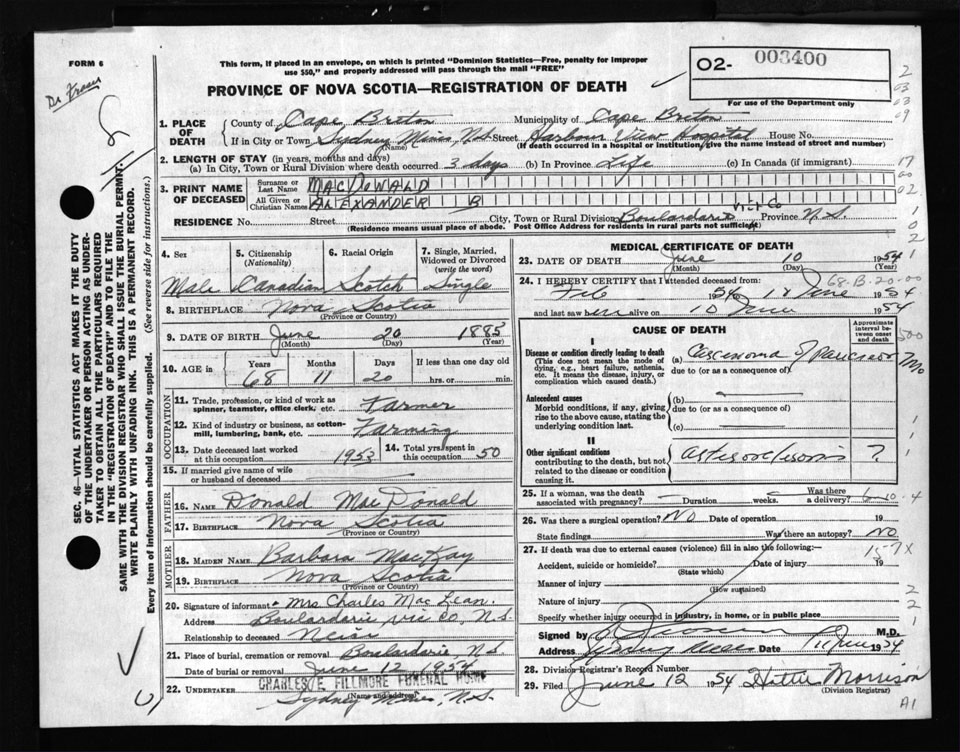 FORM 6
This form, if placed in an envelope, on which is printed "Dominion Statistics—Free, penalty for improper
use $50," and properly addressed will pass through the mail "FREE"
PROVINCE OF NOVA SCOTIA—REGISTRATION OF DEATH
O2- 003400
For use of the Department only
Dr Fraser
SEC. 46—VITAL STATISTICS ACT MAKES IT THE DUTY
OF THE UNDERTAKER OR PERSON ACTING AS UNDER-
TAKER TO OBTAIN ALL THE PARTICULARS REQUIRED
IN THE "REGISTRATION OF DEATH" AND TO FILE THE
SAME WITH THE DIVISION REGISTRAR WHO SHALL ISSUE THE BURIAL PERMIT.
WRITE PLAINLY WITH UNFADING INK. THIS IS A PERMANENT RECORD.
Every item of information should be carefully supplied. (See reverse side for instructions.)
1. PLACE OF DEATH
County of Cape Breton Municipality of Cape Breton
If in City or Town Sydney Mines N.S. Street Harbour View Hospital House No.
(Name) (If death occurred in a hospital or institution, give name instead of street and number)
2. LENGTH OF STAY (in years, months and days)
(a) In City, Town or Rural Division where death occurred 3 days (b) In Province Life (c) In Canada (if immigrant)
3. PRINT NAME OF DECEASED
Surname or Last Name MACDONALD
All Given or Christian Names ALEXANDER B
RESIDENCE No. Street City, Town or Rural Division Boularderie Vict Co Province N.S.
(Residence means usual place of abode. Post Office Address for residents in rural parts not sufficient)
4. Sex Male
5. Citizenship (Nationality) Canadian
6. Racial Origin Scotch
7. Single, Married, Widowed or Divorced (write the word) Single
8. BIRTHPLACE Nova Scotia
(Province or Country)
9. DATE OF BIRTH June 20 1885
(Month) (Day) (Year)
10. AGE in Years 68 Months 11 Days 20 If less than one day
hrs. or min.
OCCUPATION
11. Trade, profession, or kind of work as spinner, teamster, office clerk, etc. Farmer
12. Kind of industry or business, as cotton-mill, lumbering, bank, etc. Farming
13. Date deceased last worked at this occupation 1953
14. Total yrs. spent in this occupation 50
15. If married give name of wife or husband of deceased
FATHER
16. NAME Donald MacDonald
17. BIRTHPLACE Nova Scotia
(Province or Country)
MOTHER
18. MAIDEN NAME Barbara MacKay
19. BIRTHPLACE Nova Scotia
(Province or Country)
20. Signature of informant Mrs Charles MacLean
Address Boularderie Vic Co, N.S.
Relationship to deceased
21. Place of burial, cremation or removal Boularderie N.S.
Date of burial or removal June 12 1954
22. UNDERTAKER CHARLES E. FILLMORE FUNERAL HOME
(Name and address)
Sydney Mines, N.S.
MEDICAL CERTIFICATE OF DEATH
23. DATE OF DEATH June 10 1954
(Month) (Day) (Year)
68-B-20-00
24. I HEREBY CERTIFY that I attended deceased from:
Feb 1954 to June 1954
and last saw him alive on 10 June 1954
CAUSE OF DEATH
Approximate interval between onset and death
I
Disease or condition directly leading to death
(This does not mean the mode of dying, e.g., heart failure, asthenia, etc. It means the disease, injury, or complication which caused death.)
(a) Carcinoma of pancreas 7 Mo
due to (or as a consequence of)
Antecedent causes
Morbid conditions, if any, giving rise to the above cause, stating the underlying condition last.
(b)
due to (or as a consequence of)
(c)
II
Other significant conditions
contributing to the death, but not related to the disease or condition causing it.
arteriosclerosis ?
25. If a woman, was the death associated with pregnancy? Duration weeks. Was there a delivery?
26. Was there surgical operation? NO Date of operation 19
State findings Was there an autopsy? NO
27. If death was due to external causes (violence) fill in also the following:—
Accident, suicide or homicide? Date of injury 19
(State which)
Manner of injury
(How sustained)
Nature of injury
Specify whether injury occurred in industry, in home, or in public place
Signed by M.D.
Address Sydney Mines Date 11 June 1954
28. Division Registrar's Record Number
29. Filed June 12 1954 Hattie Morrison
(Division Registrar)
A1